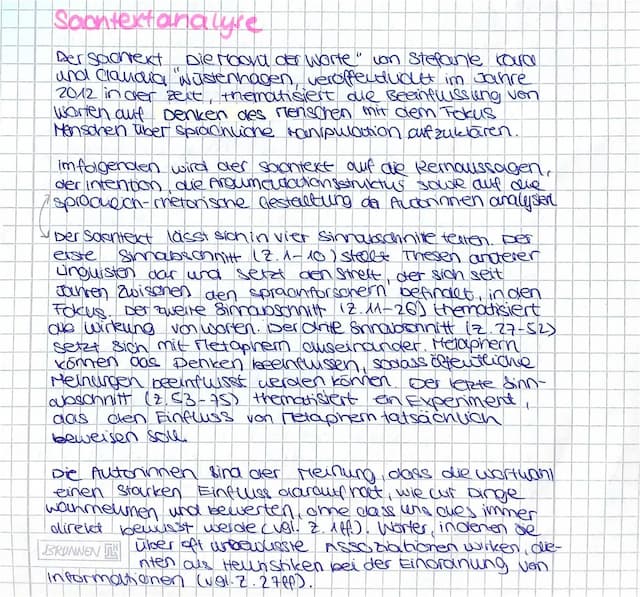 Sachtextanalyse
Der Sachtext "Die Macht der Worte" von Stefanie Kara
und Claudia Wüstenhagen, veröffentlicht im Jahre
2012 in der Zeit, thematisiert die Beeinflussung von
Worten auf Denken des Menschen mit dem Fokus
Menschen über sprachliche Manipulation aufzuklären.
Im folgenden wird der Sachtext auf die Kernaussagen,
der Intention, die Argumentationsstruktur sowie auf die
sprachlich-rhetorische Gestaltung der Autorinnen analysiert
Der Sachtext lässt sich in vier Sinnabschnitte teilen. Der
erste Sinnabschnitt (Z. 1-10) stellt Thesen anderer
Linguisten dar und setzt den Streit, der sich seit
Jahren zwischen den Sprachforschern befindet, in den
Fokus. Der zweite Sinnabschnitt (Z. 11-26) thematisiert
die Wirkung von Worten. Der dritte Sinnabschnitt (Z. 27-52)
setzt sich mit Metaphern auseinander. Metaphern
können das Denken beeinflussen, sodass öffentliche
Meinungen beeinflusst werden können. Der letzte Sinn-
abschnitt (Z. 53-75) thematisiert ein Experiment,
das den Einfluss von Metaphern tatsächlich
beweisen soll.
Die Autorinnen sind der Meinung, dass die Wortwahl
einen starken Einfluss darauf hat, wie wir Dinge
wahrnehmen und bewerten, ohne dass uns dies immer
direkt bewusst werde (vgl. Z. 1ff). Wörter, in denen sie
BRUNNEN über oft unbewusste Assoziationen wirken, die-
nten als Heuristiken bei der Einordnung von
Informationen (vgl. Z. 27ff).